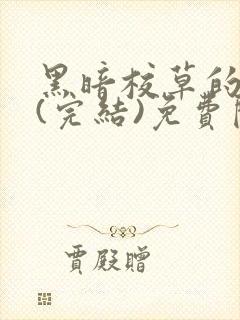 黑暗校草的
(完結)免費
賈殿贈